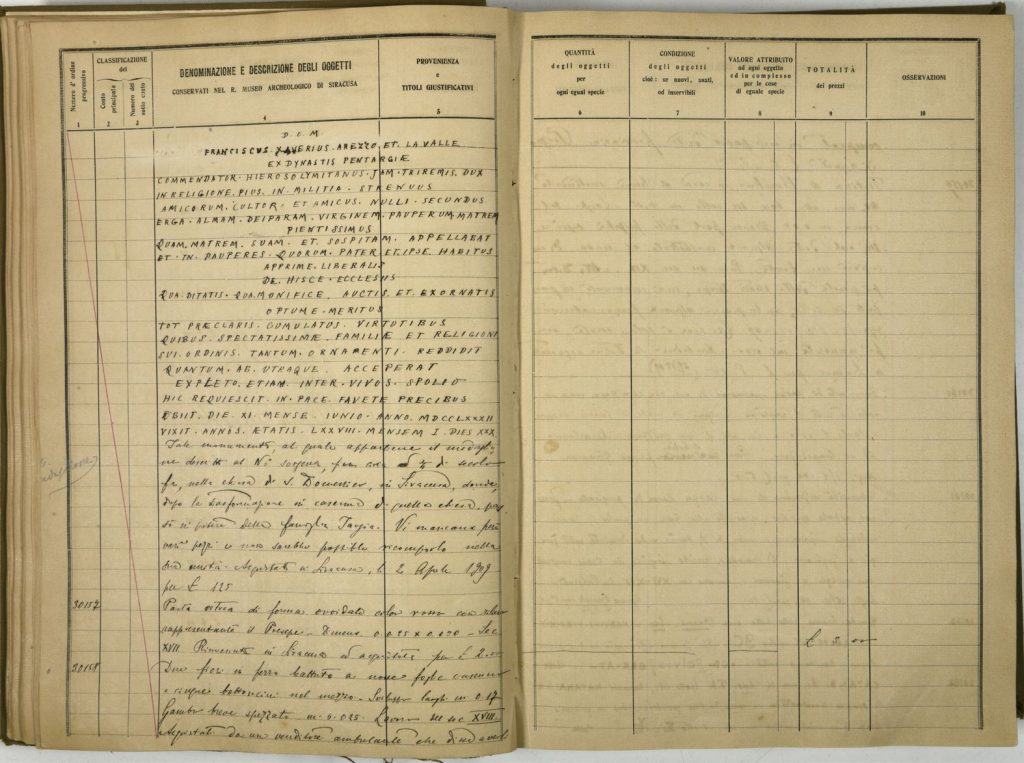 Numero d'ordine progressivo
CLASSIFICAZIONE del
Conto principale
Numero del sotto conto
DENOMINAZIONE E DESCRIZIONE DEGLI OGGETTI
CONSERVATI NEL R. MUSEO ARCHEOLOGICO DI SIRACUSA
PROVENIENZA
e
TITOLI GIUSTIFICATIVI
1 2 3 4 5
D. O. M
FRANCISCUS XAVERIUS AREZZO ET LA VALLE
EX DYNASTIS PENTARGIÆ
COMMENDATOR · HIEROSOLYMITANUS · JAM · TRIREMIS · DUX
IN RELIGIONE · PIUS · IN · MILITIA · STRENUUS
AMICORUM · CULTOR · ET · AMICUS · NULLI · SECUNDUS
ERGA · ALMAM · DEIPARAM · VIRGINEM · PAUPERUM · MATREM
PIENTISSIMUS
QUAM · MATREM · SUAM · ET · SOSPITAM · APPELLABAT
ET · IN · PAUPERES · QUORUM · PATER · ET · IPSE · HABITUS
APPRIME · LIBERALIS
DE · HISCE · ECCLESIIS
QUA · DITATIS · QUA · MONIFICE · AUCTIS · ET · EXORNATIS
OPTUME · MERITUS
TOT PRÆCLARIS · CUMULATUS · VIRTUTIBUS
QUIBUS · SPECTATISSIMÆ · FAMILIÆ ET RELIGIONI
SUI · ORDINIS · TANTUM · ORNAMENTI · REDDIDIT
QUANTUM · AB · UTRAQUE · ACCEPERAT
EXPLETO · ETIAM · INTER · VIVOS · SPOLIO
HIC REQUIESCIT · IN · PACE · FAVETE PRECIBUS
OBIIT · DIE · XI · MENSE · IUNIO · ANNO · MDCCLXXXII
VIXIT · ANNOS · ÆTATIS · LXXVIII · MENSEM I · DIES XXX
Tale monumento, al quale appartiene il
descritto al Nº
fa, nella chiesa di S. Domenico, in Siracusa, donde,
dopo la trasformazione in caserma di quella chiesa,
in potere della famiglia Targia. Vi mancano però
pezzi e non sarebbe possibile ricomporlo nella
sua Acquistato in Siracusa, il 2 Aprile 1909
per £ 125
30157 Pasta vitrea di forma ovoidale color rosso con rilievo
rappresentante il Presepe - Dimens. 0.025 x 0.020 - Sec.
XVII. Rinvenuta in Siracusa ed acquistata per £ 2.00
30158 Due fiori in ferro battuto a nove foglie
e cinque bottoncini nel mezzo - lungh m. 0.17
Gambo breve spezzato m. 0.025. Lavoro del sec XVIII.
Acquistati da un venditore ambulante che
QUANTITÀ
degli oggetti
per
ogni egual specie
CONDIZIONE
degli oggetti
cioè: se nuovi, usati,
od inservibili
VALORE ATTRIBUITO
ad ogni oggetto
ed in complesso
per le cose
di eguale specie
TOTALITÀ
dei prezzi
OSSERVAZIONI
6 7 8 9 10
£ 2. 00